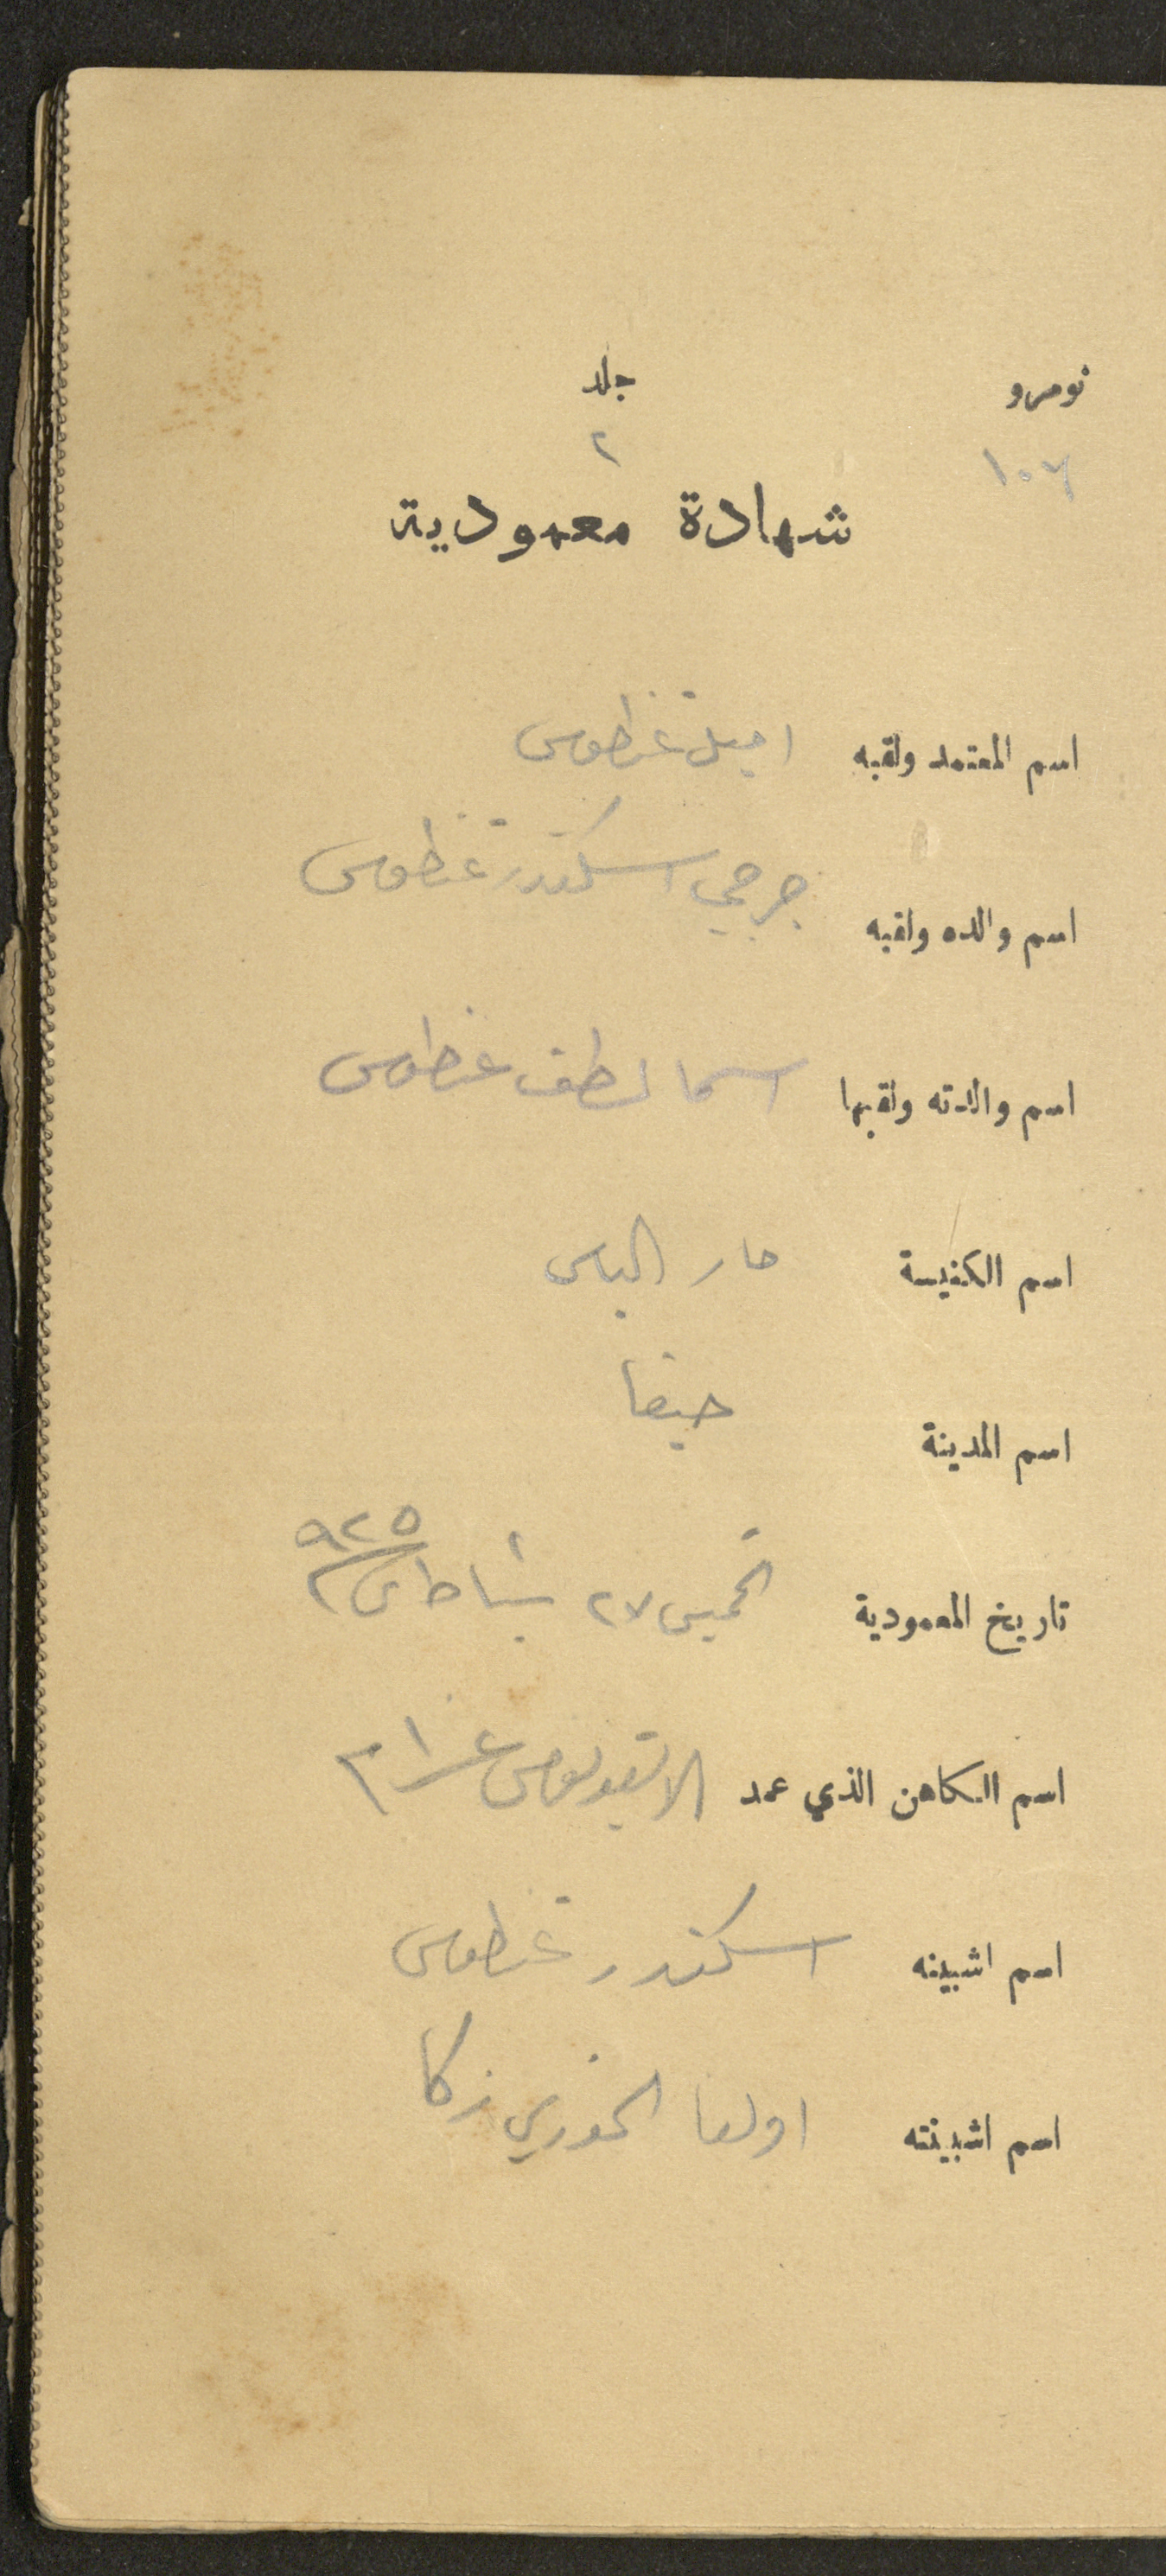 نومرو جلد
١٠٦ ٢
شهادة معمودية
اسم المعتمد ولقبه اميل غنطوس
اسم والده ولقبه جرجي اسكندر غنطوس
اسم والدته ولقبها اسما لطف غنطوس
اسم الكنيسة مار الياس
اسم المدينة حيفا
تاريخ المعمودية الخميس ٢٧ شباط ٩٢٥
اسم الكاهن الذي عمد
اسم اشبينه اسكندر غنطوس
اسم اشبينته اولغا الخوري زكا